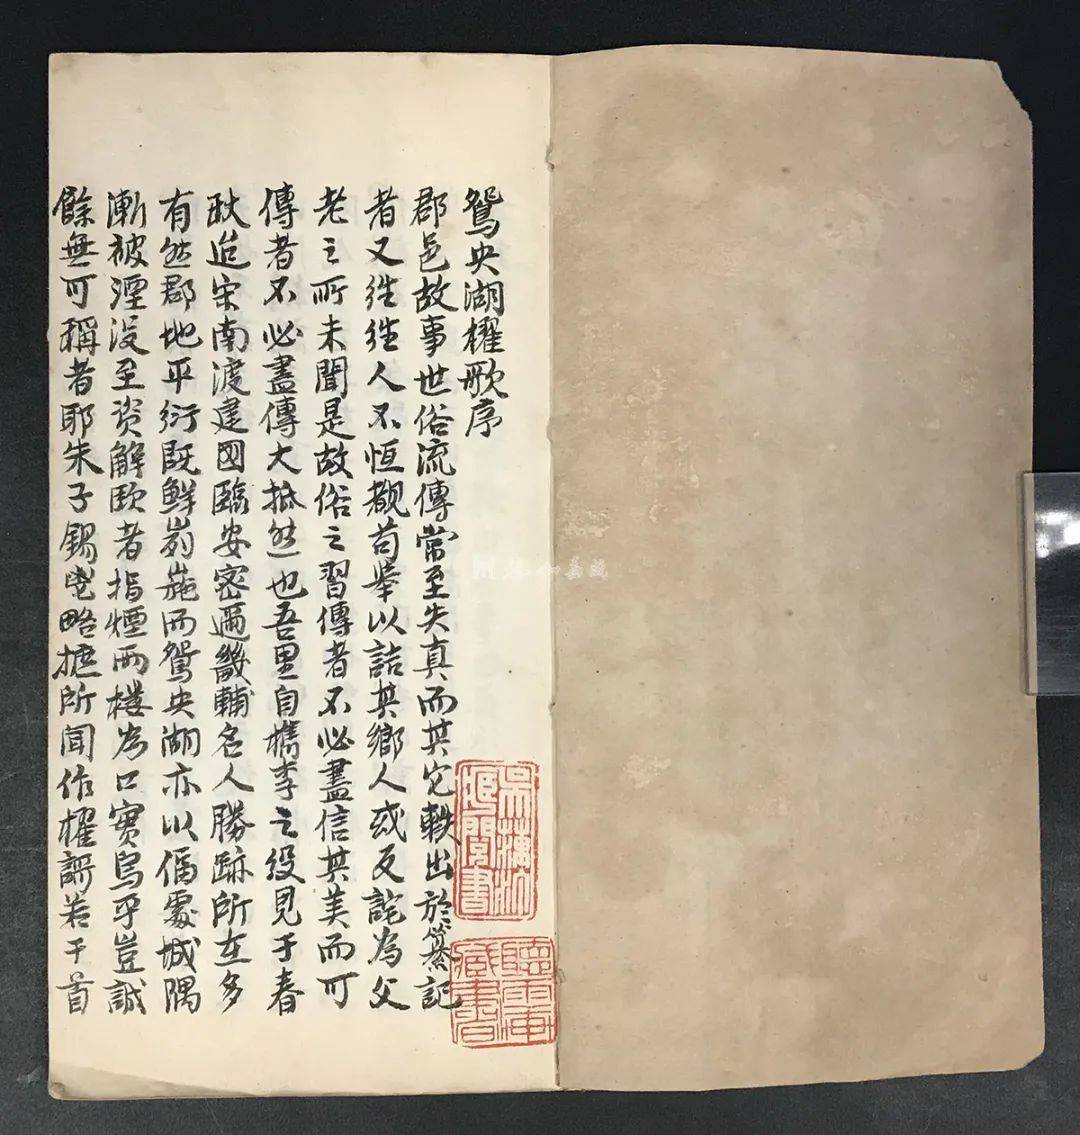 鴛央湖櫂歌序
郡邑故事世俗流傳常至失真而其它軼出於纂記
者又往往人不恒覩苟舉以詰其鄉人或反詑為父
老之所未聞是故俗之習傳者不必盡信其美而可
傳者不必盡傳大抵然也吾里自檇李之役見于春
秌迨宋南渡建國臨安密邇畿輔名人勝跡所在多
有然郡地平衍既鮮峛崺而鴛央湖亦以偪處城隅
漸被湮没至资解者指煙雨樓為口實烏乎豈誠
餘無可稱者耶朱子錫鬯略摭所聞作櫂謌若干首
吳藕汀
閱書
聽雨
藏書